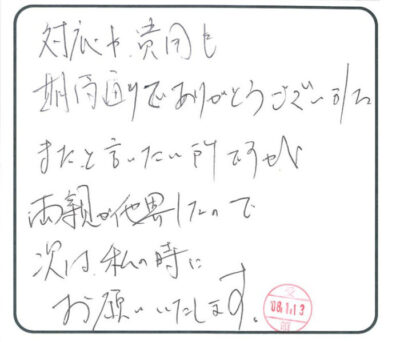 対応や費用も
期待通りでありがとうございました
またと言いたい所ですが
両親が他界したので
次は、私の時に
お願いいたします。
08.1.13